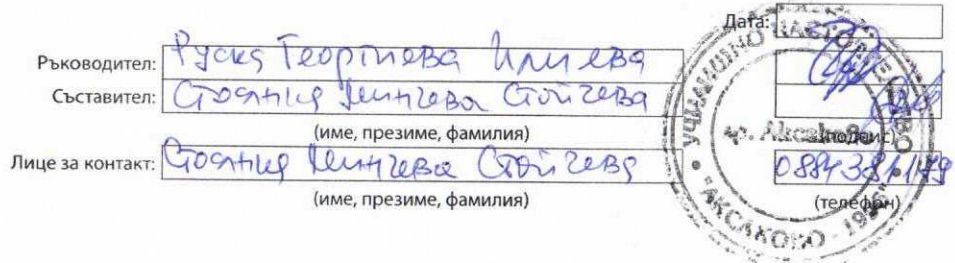 Дата:
Ръководител: Руска Георгиева Илиева
Съставител: Стояния Минчева Стойчева
(име, презиме, фамилия) (подпис)
Лице за контакт: Стояния Минчева Стойчева
(име, презиме, фамилия) (телефон)
УЧИЛИЩНО НАСТОЯТЕЛСТВО
гр. Аксаково
"АКСАКОВО